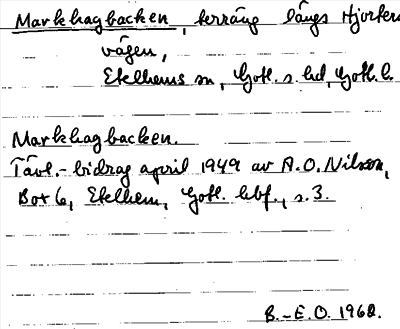 Markhagbacken, terräng längs Hjorters
vägen,
Etelhems sn, Gotl. s. hd, Gotl. l.
Markhagbacken.
Tävl.-bidrag april 1949 av A.O. Nilsson,
Box 6, Etelhem, Gotl. hbf., s. 3.
B.-E.O. 1962.